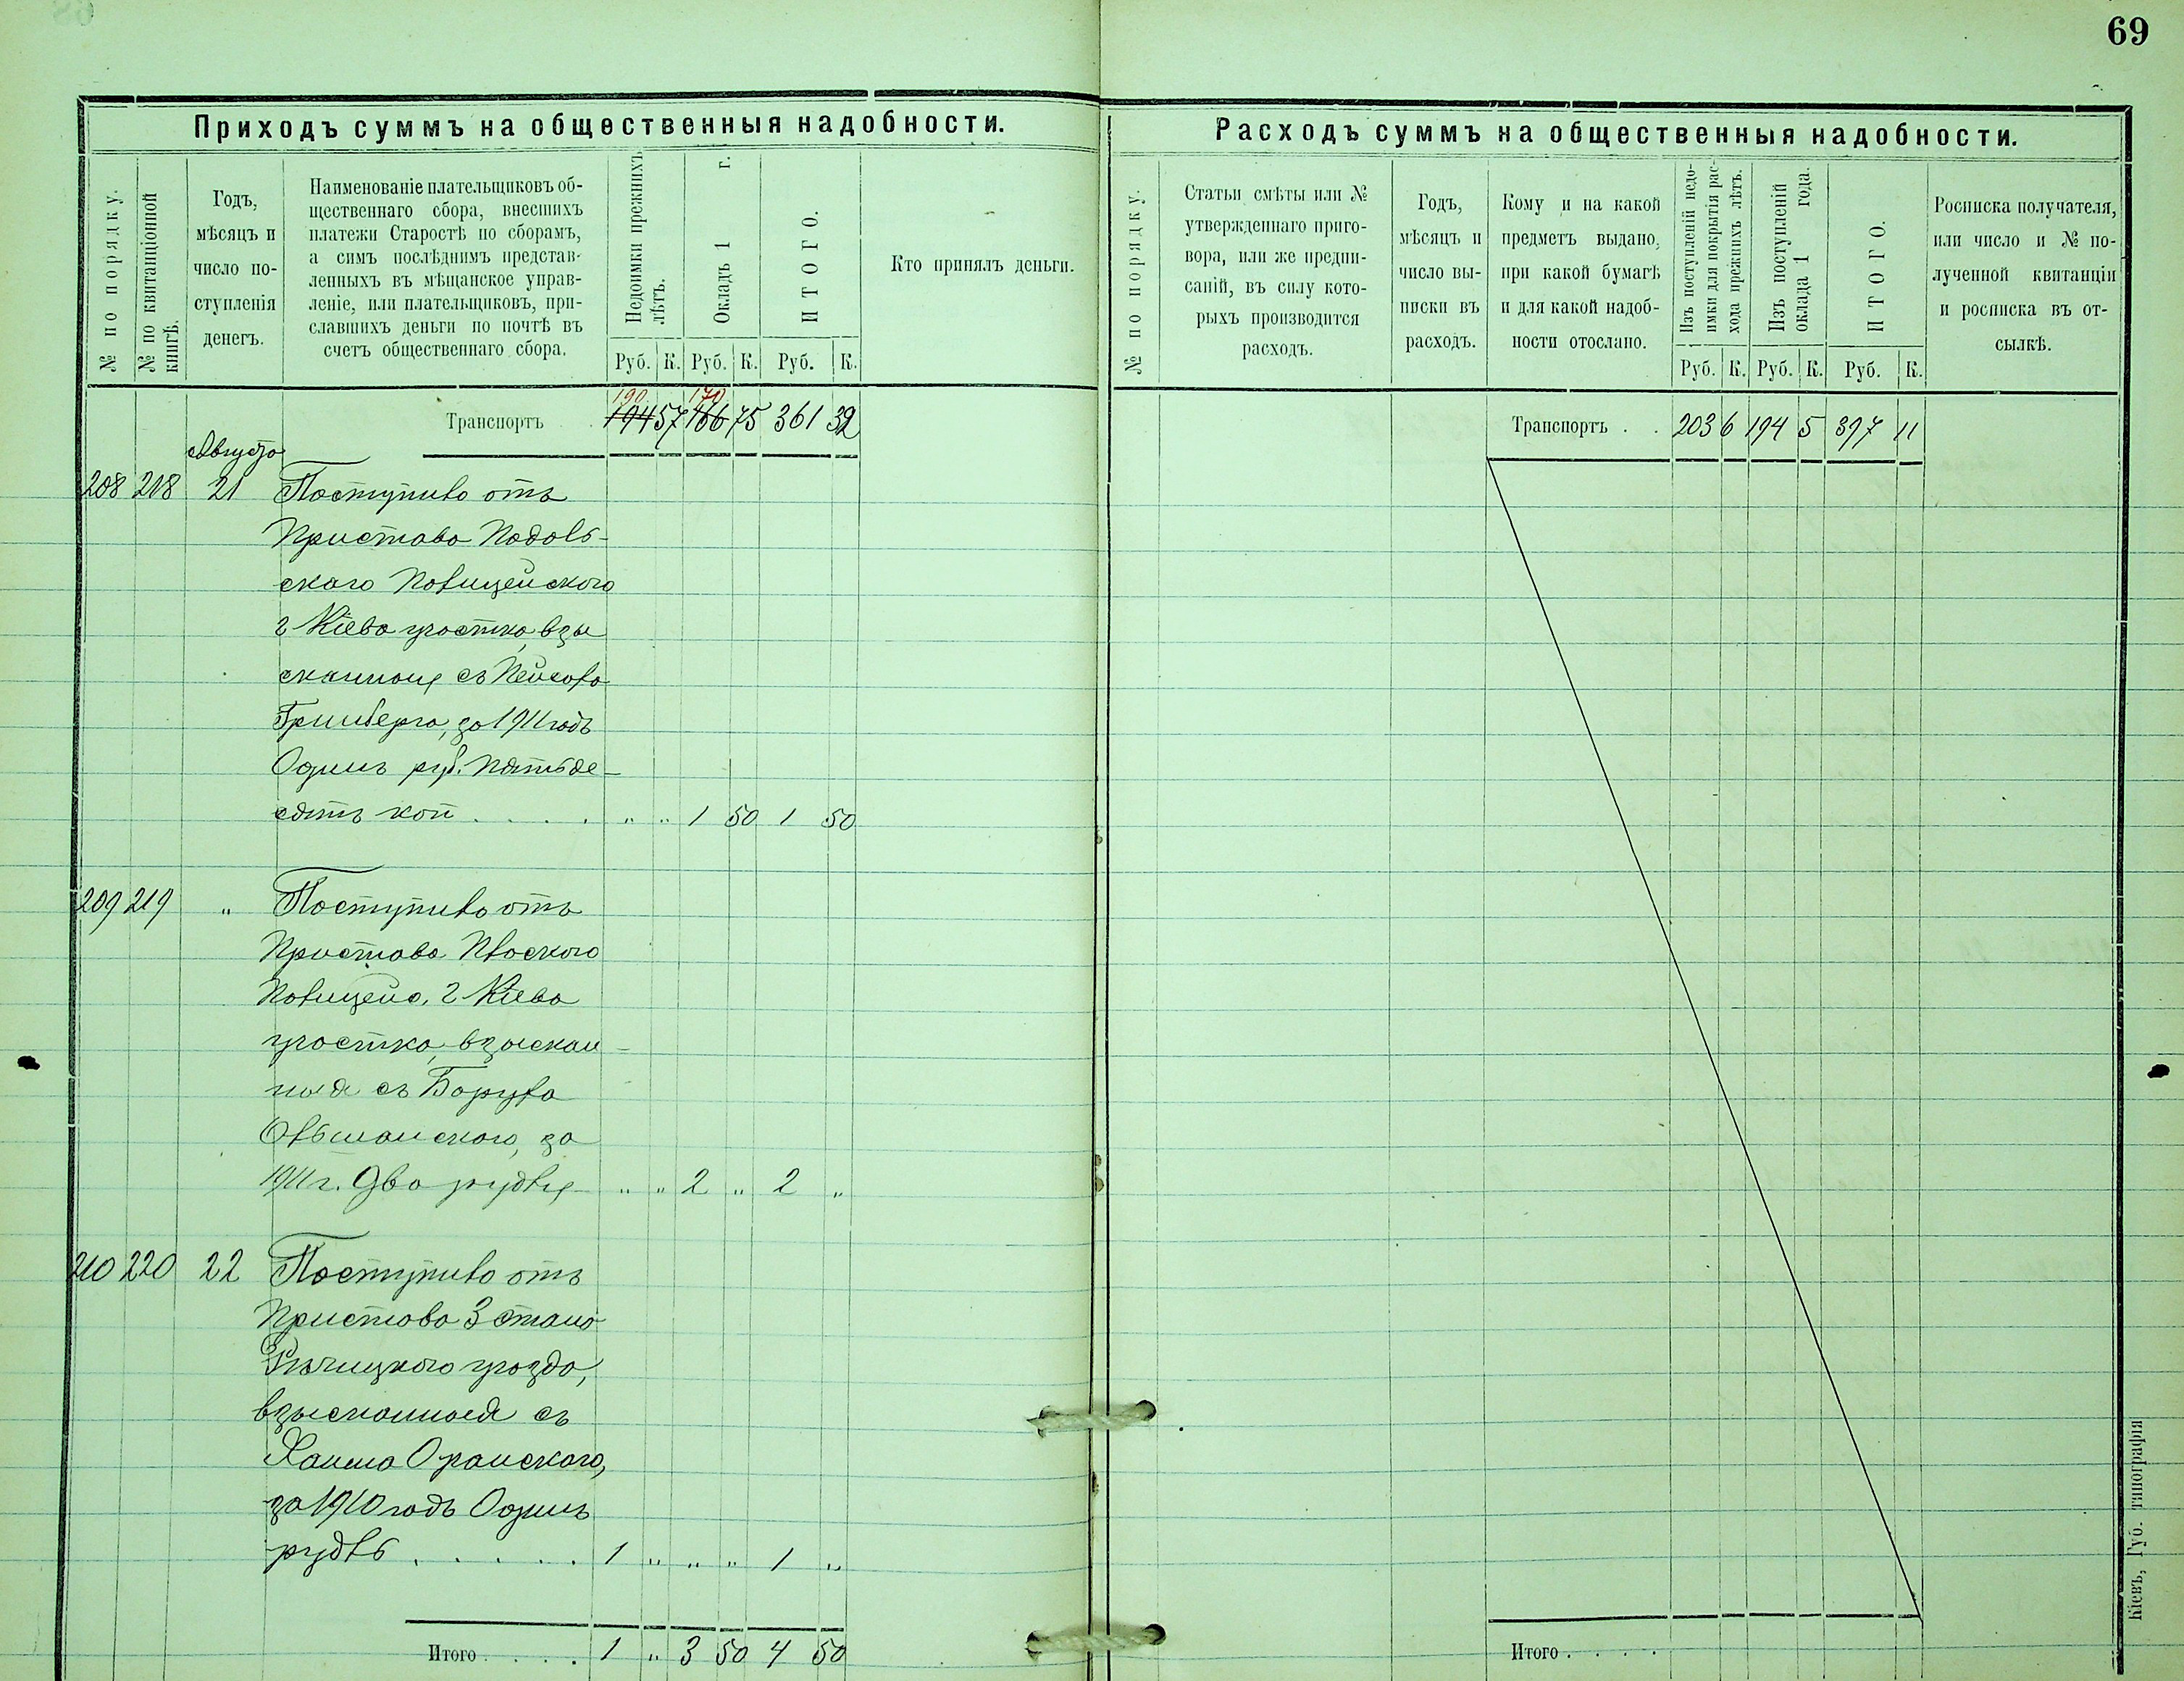 69
Приходъ суммъ на общественныя надобности.
№ по порядку.
№ по квитанціонной
книгѣ.
Годъ,
мѣсяцъ и
число по-
ступленія
денегъ.
Наименованіе плательщиковъ об-
щественнаго сбора, внесшихъ
платежи Старостѣ по сборамъ,
а симъ послѣднимъ представ-
ленныхъ въ мѣщанское управ-
леніе, или плательщиковъ, при-
славшихъ деньги по почтѣ въ
счетъ общественнаго сбора.
Недоимки прежнихъ
лѣтъ.
Окладъ 1 г.
ИТОГО.
Руб. К. Руб. К. Руб. К.
Кто принялъ деньги.
190. 170
Транспортъ 194 57 166 75 361 32
Августа
208 218 21 Поступило отъ
Пристава Подоль-
скаго Полицейскаго
г Кіева участка, взы
сканные съ Пейсаха
Гринберга, за 1911 годъ
Одинъ руб. Пятьде-
сятъ коп . . . . " " 1 50 1 50
209 219 " Поступило отъ
Пристава Плоскаго
Полицейс. г Кіева
участка, взыскан-
ныя съ Боруха
Ольшанскаго, за
1911 г. Два рубля " " 2 " 2 "
210 220 22 Поступило отъ
Пристава 3 стана
Рѣчицкаго уѣзда,
взысканныя съ
Хаима Оранскаго,
за 1910 годъ Одинъ
рубль . . . . . . 1 " " " 1 "
Итого . . . . 1 " 3 50 4 50
Расходъ суммъ на общественныя надобности.
№ по порядку.
Статьи смѣты или №
утвержденнаго приго-
вора, или же предпи-
саній, въ силу кото-
рыхъ производится
расходъ.
Годъ,
мѣсяцъ и
число вы-
писки въ
расходъ.
Кому и на какой
предметъ выдано,
при какой бумагѣ
и для какой надоб-
ности отослано.
Изъ поступленій недо-
имки для покрытія рас-
хода прежнихъ лѣтъ.
Изъ поступленій
оклада 1 года.
ИТОГО.
Руб. К. Руб. К. Руб. К.
Росписка получателя,
или число и № по-
лученной квитанціи
и росписка въ от-
сылкѣ.
Транспортъ . . 203 6 194 5 397 11
Итого . . . .
Кіевъ, Губ. типографія